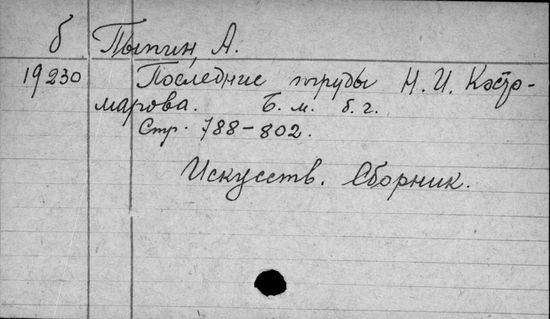 б Пыпин, А.
19230 Последние труды Н. И. Косто-
марова. Б. м. б. г.
Стр. 788-802.
Искусств. Сборник.